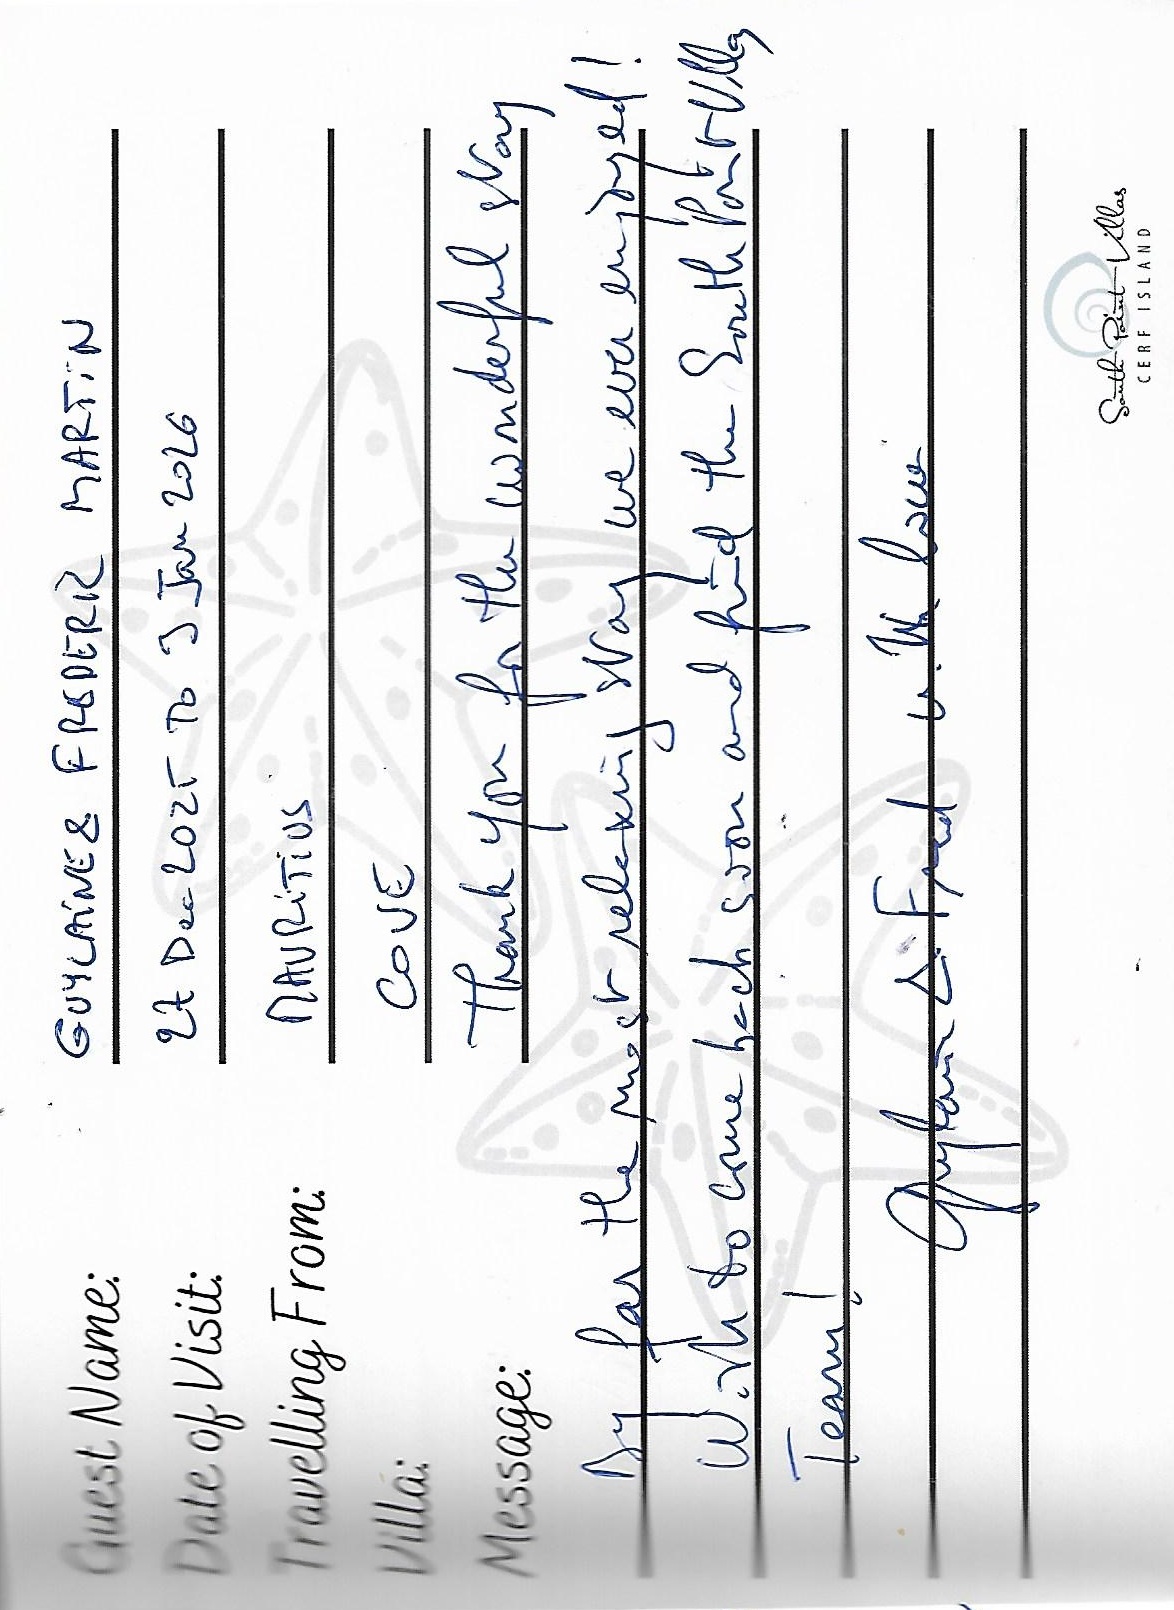 Guest Name: GUYLAINE & FREDERIC MARTIN
Date of Visit: 27 Dec 2025 To 3 Jan 2026
Travelling From: MAURITIUS
Villa: COVE
Message: Thank you for the wonderful stay
By far the most relaxing stay we ever enjoyed!
Wish to come back soon and find the South Point Villa
Team!
Guylaine & Fred
South Point Villas
CERF ISLAND